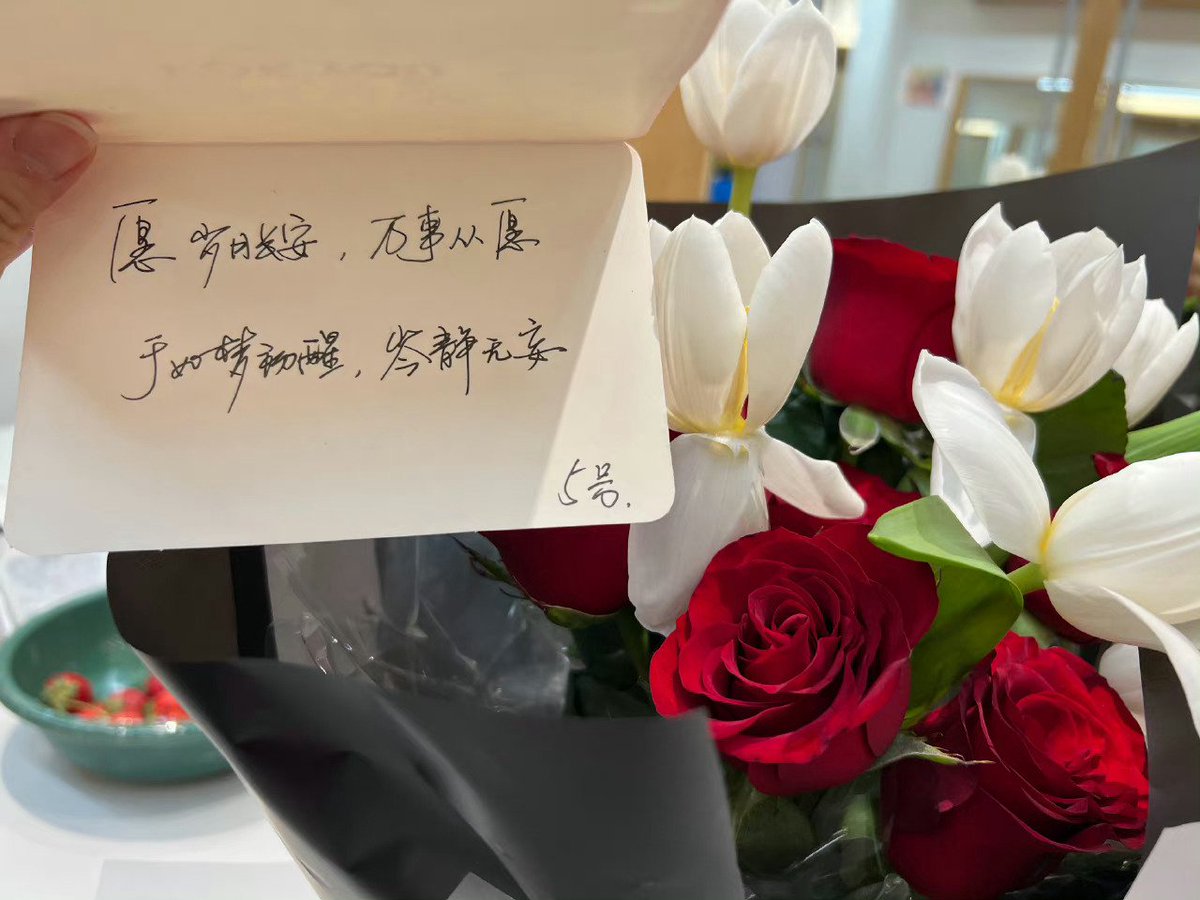 愿岁月长安，万事从愿
于如梦初醒，岑静无妄
5号.